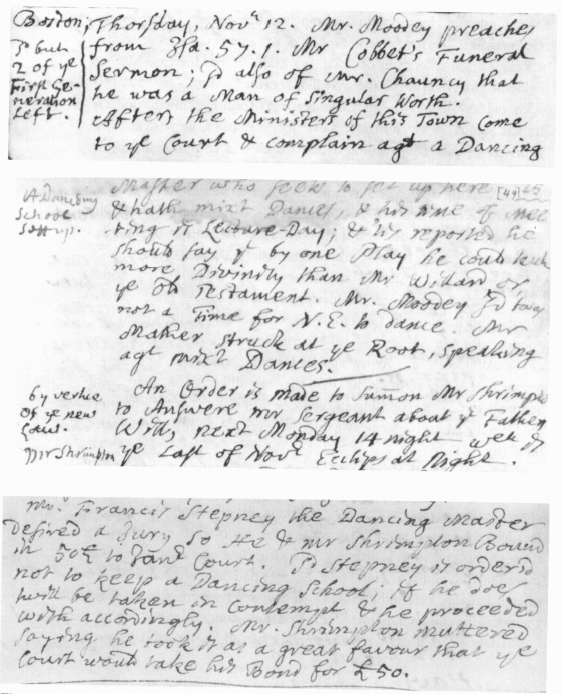 Boston, Thorsday, Novr 12. Mr. Moodey preaches
from Isa. 57. 1. Mr Cobbet's Funeral
Sermon; sd also of Mr. Chauncy that
he was a Man of Singular Worth.
After, the Ministers of this Town come
to ye Court & complain agt a Dancing
sd but
2 of ye
First Ge-
neration
Left.
Master who seeks to set up here
& hath mixt Dances, & his time of Mee
ting is Lecture-Day; & 'tis reported he
should say yt by one Play he could teach
more Divinity than Mr Willard or
ye Old Testament. Mr. Moodey sd 'twas
not a Time for N.E. to dance. Mr
Mather struck at ye Root, speaking
agt mixt Dances.
A Dancing
School
Sett up.
[49]
An Order is made to Sumon Mr Shrimpto
to Answere mr Sergeant about ys Father
Will, next Monday 14 night wch is
ye Last of Novr Eclips at Night.
by vertue
of ye new
Laws.
Mr Shrimpton
Mr. Francis Stepney the Dancing Master
Desired a Jury So He & mr Shrimpton Bound
in 50£ to Janr Court. Sd Stepney is order'd
not to keep a Dancing School; if he does
will be taken in Contempt & be proceeded
with accordingly. Mr. Shrimpton muttered
saying he took it as a great favour that ye
Court would take his Bond for £50.